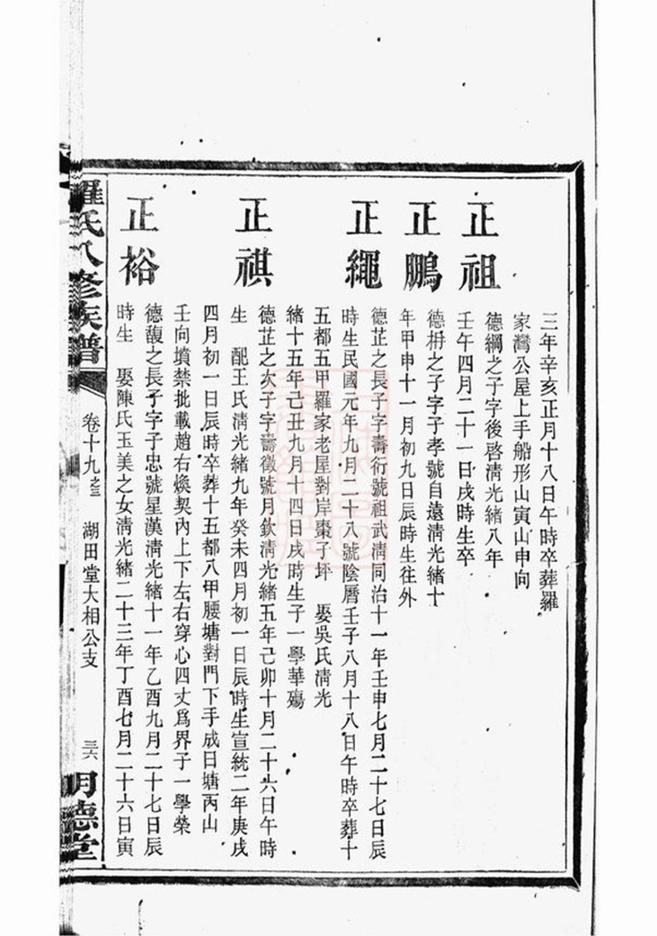 三年辛亥正月十八日午時卒葬羅
家灣公屋上手船形山寅山申向
正祖
德綱之子字後啓清光緒八年
壬午四月二十一日戌時生卒
正鵬
德枏之子字子孝號自遠清光緒十
年甲申十一月初九日辰時生往外
正繩
德芷之長子字壽衍號祖武清同治十一年壬申七月二十七日辰
時生民國元年九月二十八號陰曆壬子八月十八日午時卒葬十
五都五甲羅家老屋對岸棗子坪 娶吳氏清光
緒十五年己丑九月十四日戌時生子一學華殤
正祺
德芷之次子字壽徵號月欽清光緒五年己卯十月二十六日午時
生 配王氏清光緒九年癸未四月初一日辰時生宣統二年庚戌
四月初一日辰時卒葬十五都八甲腰塘對門下手成日塘丙山
壬向墳禁批載趙右煥契內上下左右穿心四丈爲界子一學榮
正裕
德馥之長子字子忠號星漢清光緒十一年乙酉九月二十七日辰
時生 娶陳氏玉美之女清光緒二十三年丁酉七月二十六日寅
羅氏八修族譜
卷十九之三 湖田堂大相公支
三六
明德堂